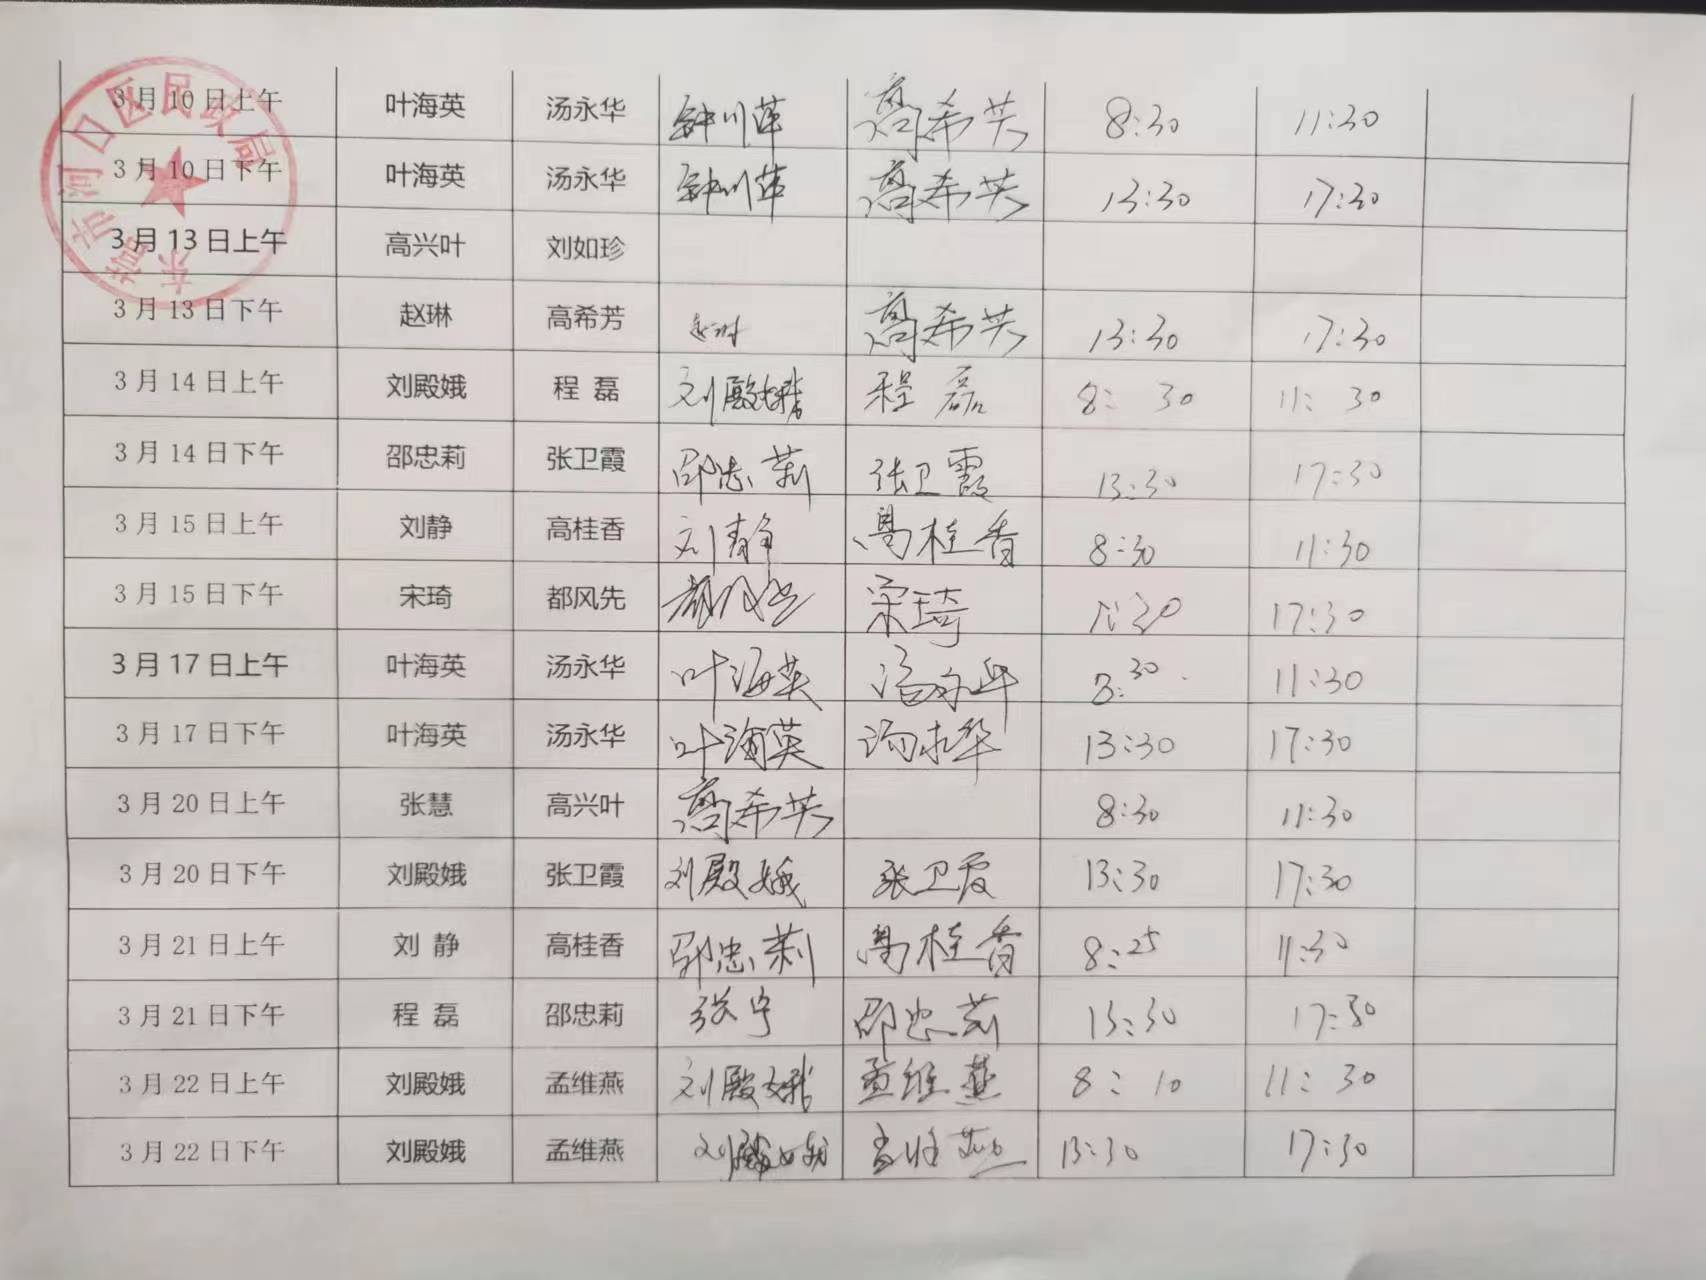 东营市河口区民政局
3月10日上午 叶海英 汤永华 钟川萍 高希芳 8:30 11:30
3月10日下午 叶海英 汤永华 钟川萍 高希芳 13:30 17:30
3月13日上午 高兴叶 刘如珍
3月13日下午 赵琳 高希芳 赵琳 高希芳 13:30 17:30
3月14日上午 刘殿娥 程磊 刘殿娥 程磊 8:30 11:30
3月14日下午 邵忠莉 张卫霞 邵忠莉 张卫霞 13:30 17:30
3月15日上午 刘静 高桂香 刘静 高桂香 8:30 11:30
3月15日下午 宋琦 都风先 都风先 宋琦 13:30 17:30
3月17日上午 叶海英 汤永华 叶海英 汤永华 8:30 11:30
3月17日下午 叶海英 汤永华 叶海英 汤永华 13:30 17:30
3月20日上午 张慧 高兴叶 高希芳 8:30 11:30
3月20日下午 刘殿娥 张卫霞 刘殿娥 张卫霞 13:30 17:30
3月21日上午 刘静 高桂香 邵忠莉 高桂香 8:25 11:30
3月21日下午 程磊 邵忠莉 张宁 邵忠莉 13:30 17:30
3月22日上午 刘殿娥 孟维燕 刘殿娥 孟维燕 8:10 11:30
3月22日下午 刘殿娥 孟维燕 刘殿娥 孟维燕 13:30 17:30